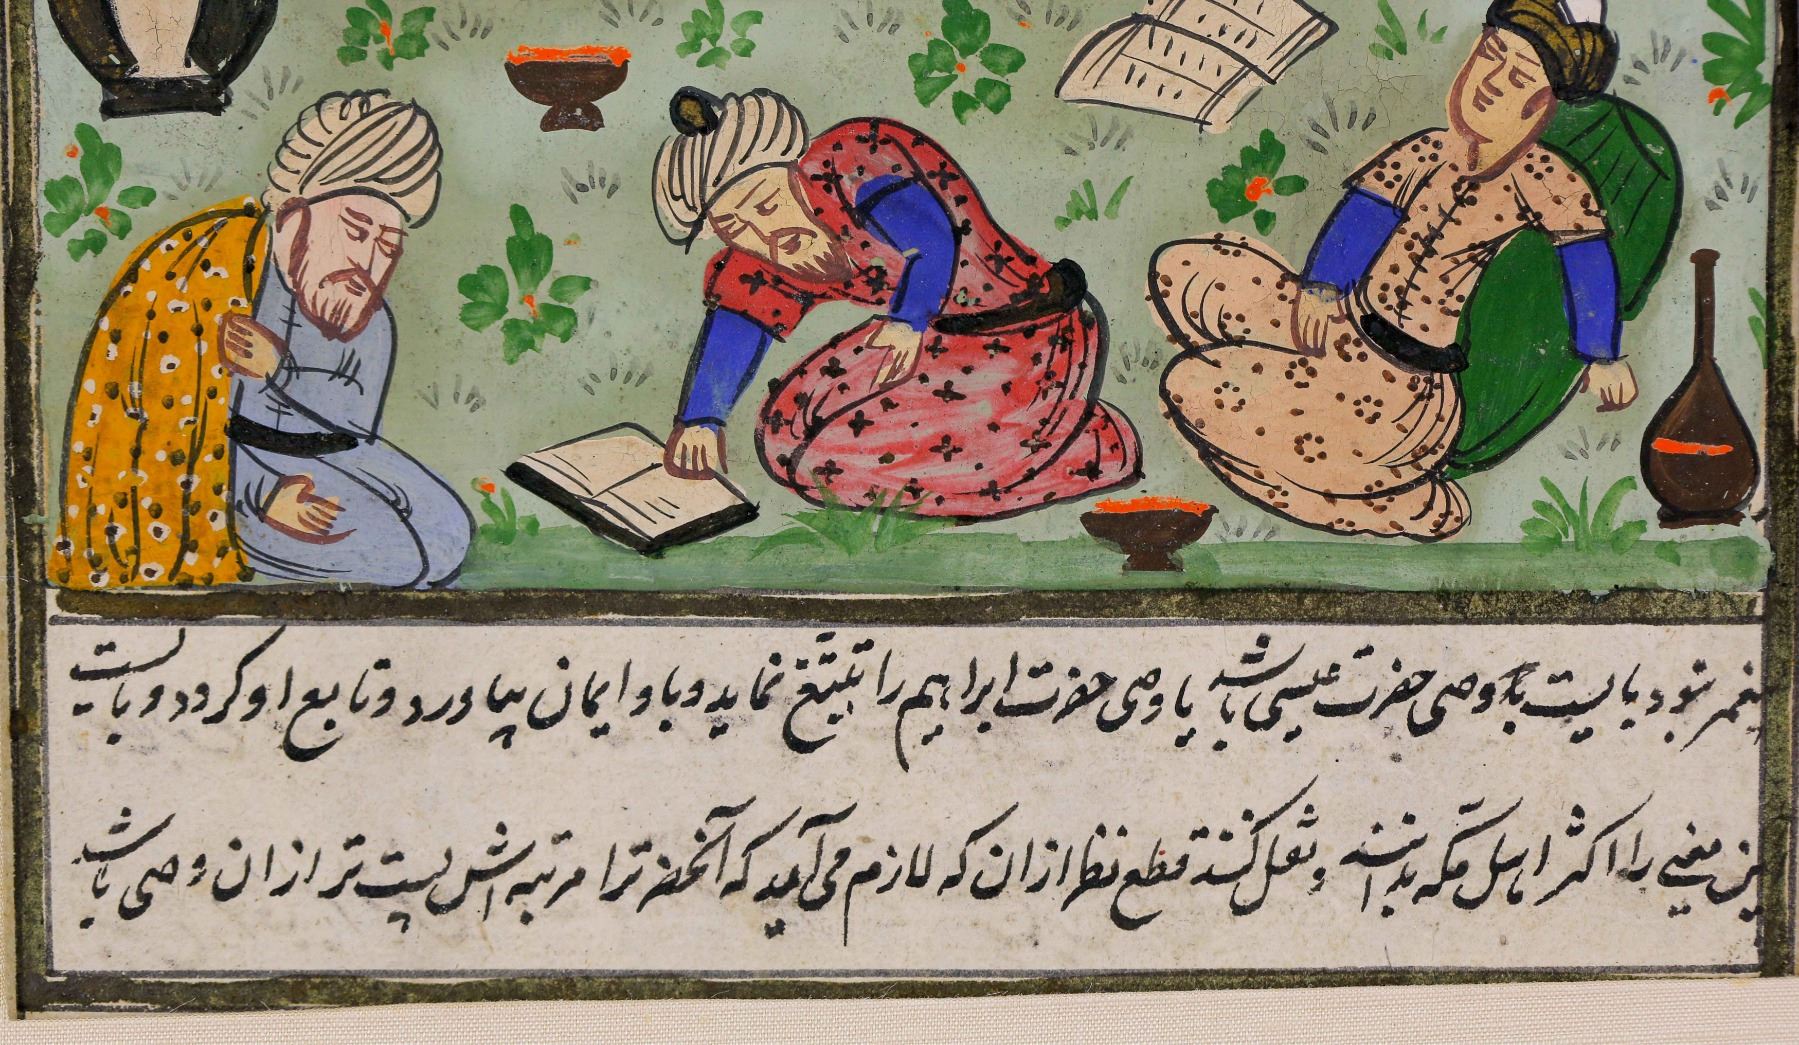 پیغمبر نبود بایست با وصی حضرت عیسی باشد یا وصی حضرت ابراهیم را تبلیغ نماید و با و ایمان بیاورد و تابع او کردد و بایست
این معنی را اکثر اهل مکه بدانند و نقل کنند قطع نظر ازان که لازم می آمد که آنحضرترا مرتبه اش پست تر از ان وصی باشد